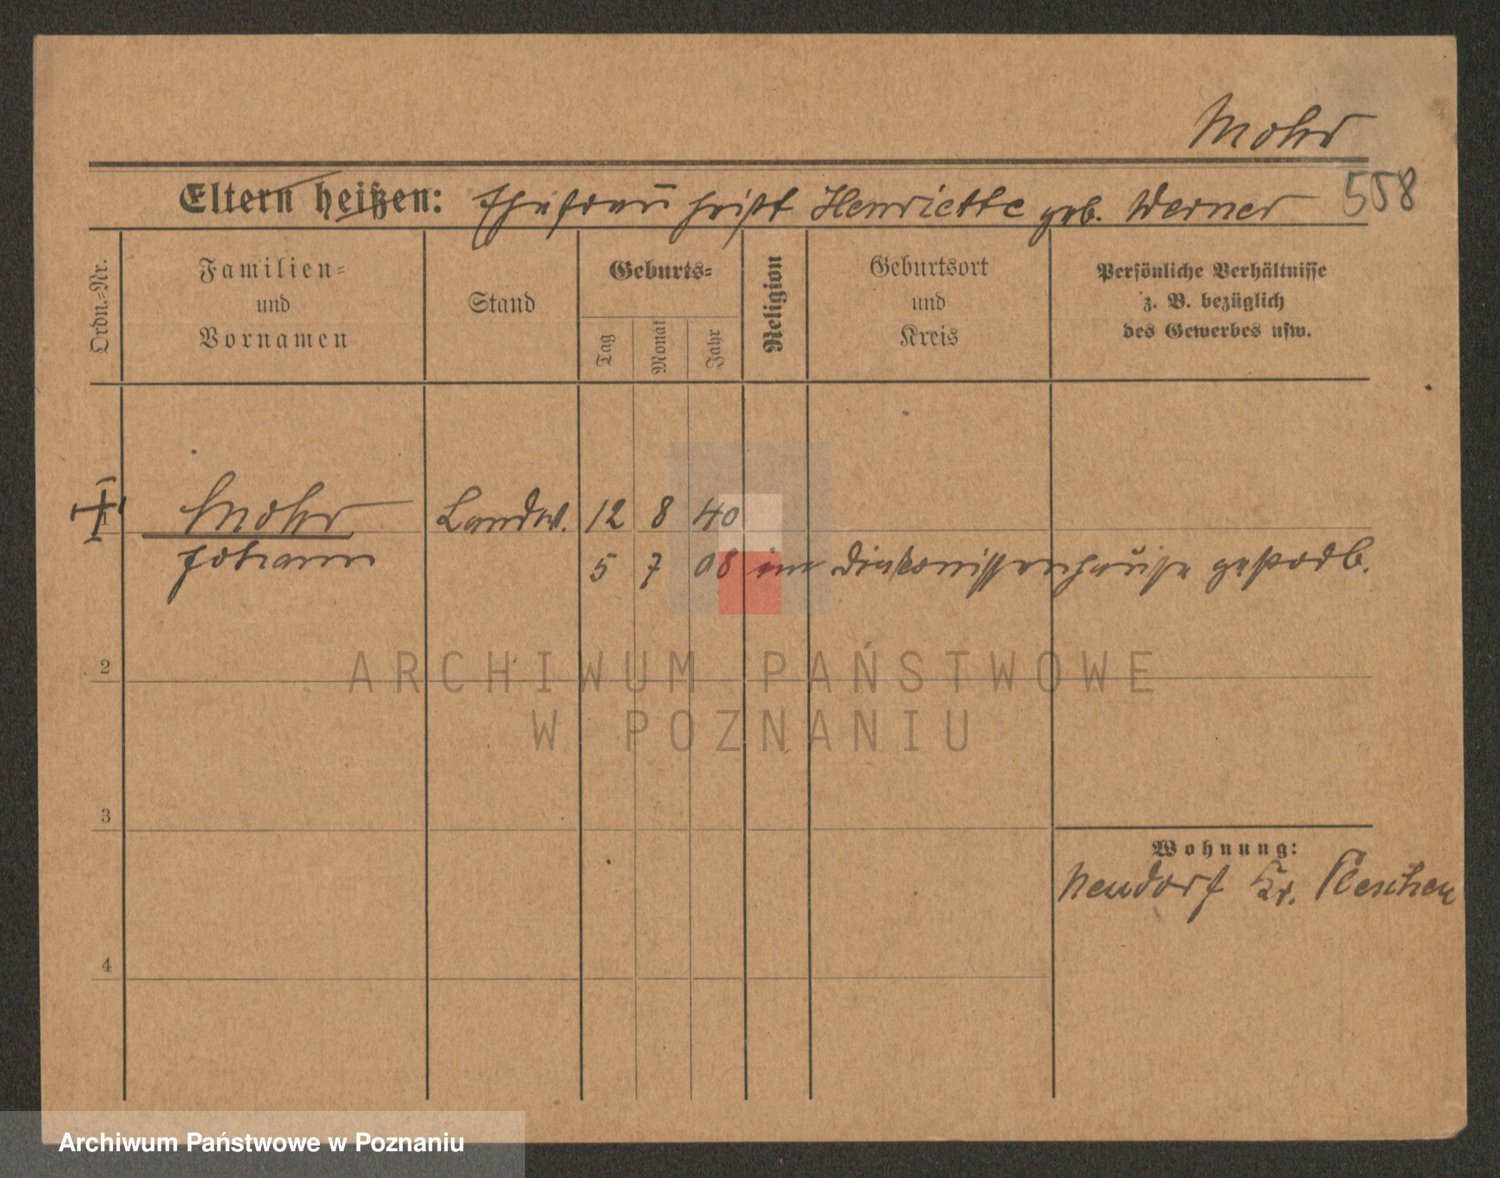 Mohr
Eltern heißen: Ehefrau heißt Henriette geb. Werner 558
Ordn.-Nr.
Familien-
und
Vornamen
Stand
Geburts-
Tag
Monat
Jahr
Religion
Geburtsort
und
Kreis
Persönliche Verhältnisse
z. B. bezüglich
des Gewerbes usw.
Mohr Landw. 12 8 40
Johann 5 7 08 im Diakonissenhause gestorb.
2
3
4
Wohnung:
Neudorf Kr. Pleschen
ARCHIWUM PAŃSTWOWE
W POZNANIU
Archiwum Państwowe w Poznaniu